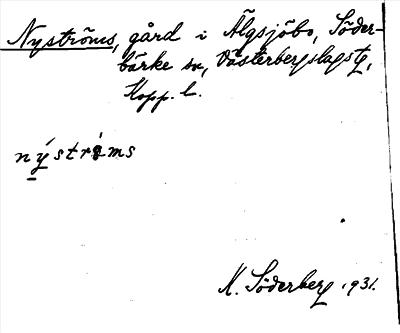 Nyströms, gård i Älgsjöbo, Söder-
bärke sn, Västerbergslagstg,
Kopp. l.
nýströms
K. Söderberg 1931.